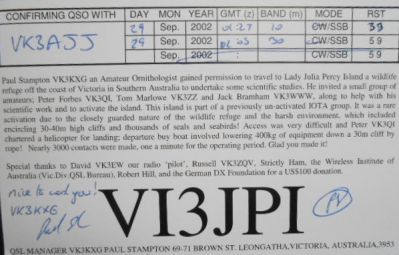 CONFIRMING QSO WITH DAY MON YEAR GMT (z) BAND (m) MODE RST
VK3AJJ 29 Sep. 2002 01:27 10 CW/SSB 59
29 Sep. 2002 03 30 CW/SSB 59
Sep. 2002 CW/SSB 59
Paul Stampton VK3KXG an Amateur Ornithologist gained permission to travel to Lady Julia Percy Island a wildlife
refuge off the coast of Victoria in Southern Australia to undertake some scientific studies. He invited a small group of
amateurs; Peter Forbes VK3QI, Tom Marlowe VK3ZZ and Jack Bramham VK3WWW, along to help with his
scientific work and to activate the island. This island is part of a previously un-activated IOTA group. It was a rare
activation due to the closely guarded nature of the wildlife refuge and the harsh environment, which included
encircling 30-40m high cliffs and thousands of seals and seabirds! Access was very difficult and Peter VK3QI
chartered a helicopter for landing; departure by boat involved lowering 400kg of equipment down a 30m cliff by
rope! Nearly 3000 contacts were made, one a minute for the operating period. Glad you made it!
Special thanks to David VK3EW our radio 'pilot', Russell VK3ZQV, Strictly Ham, the Wireless Institute of
Australia (Vic.Div.QSL Bureau), Robert Hill, and the German DX Foundation for a US$100 donation.
nice to work you!
VK3KXG
Paul
VI3JPI
QSL MANAGER VK3KXG PAUL STAMPTON 69-71 BROWN ST. LEONGATHA, VICTORIA, AUSTRALIA, 3953